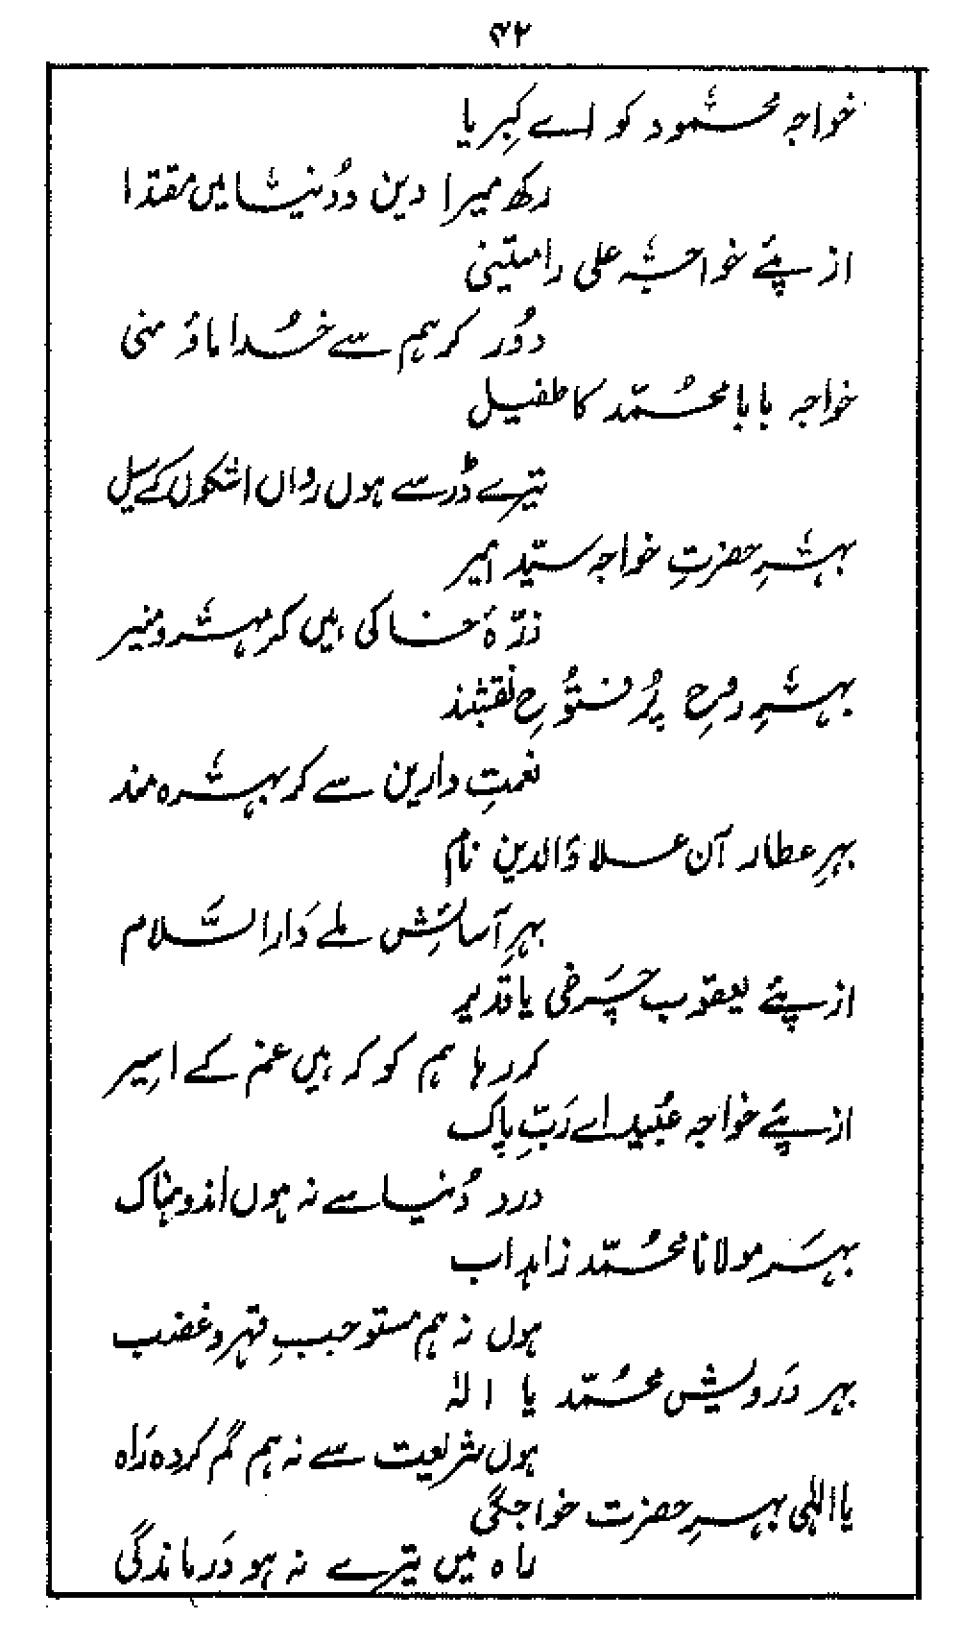 ۴۲
خواجہ محمود کو اے کبریا
رکھ میرا دین و دُنیا میں مقتدا
از پئے خواجہ علی رامتینی
دُور کر ہم سے خُدا ما و منی
خواجہ بابا محُمّد کا طفیل
تیرے ڈر سے ہوں رواں اشکوں کے سیل
بہرِ حضرتِ خواجہ سیّد امیر
ذرّہٗ خاکی ہیں کر مہر و منیر
بہرِ روحِ پُر فتُوحِ نقشبند
نعمتِ دارین سے کر بہرہ مند
بہرِ عطار آن علاؤالدین نام
بہرِ آسائِش ملے دَارالسَّلام
از پئے یعقوب چَرخی یا قدیر
کر رہا ہم کو کہ ہیں غم کے اسِیر
از پئے خواجہ عُبید اے رَبِّ پاک
درد دُنیا سے نہ ہوں اندوہناک
بہَر مولانا محُمّد زاہد اب
ہوں نہ ہم مستوجبِ قہر و غضب
بہر دَرویش محُمّد یا الٰہ
ہوں شریعت سے نہ ہم گم کردہ رَاہ
یا الٰہی بہرِ حضرت خواجگی
راہ میں تیرے نہ ہو دَرماندگی